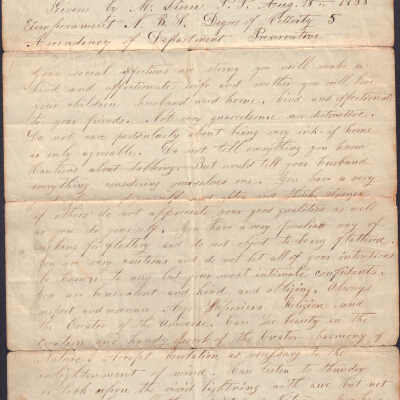 Given by M. Aug. 18 1888
Temperament N. B. S. Degree of Activity 5
Ascendancy of Department Preservative
Your social affections are strong you will make a
kind and affectionate wife and mother you will love
your children husband and home. kind and affectionate
to your friends. Not very quarrelsome or destructive.
Do not care particularly about being very much of home
is only agreeable. Do not tell everything you know
Cautious about talking. But would tell your husband
everything considering yourselves one. You have a very
and often think
of others do not appreciate your good qualities as well
as you do yourself. You have a very peculiar way of
and do not object to being flattered.
You are very cautious and do not let all of your intentions
be known to any but your most intimate confidents.
You are benevolent and kind and obliging. Always
respect and reverence Age Superiors Religion and
the Creator of the Universe. Can see beauty in the
Creation and handy work of the Creator harmony of
Nature. Accept as necessary to the
enlightenment of mind. Can listen to thunder
or look upon the vivid lightning with awe but not